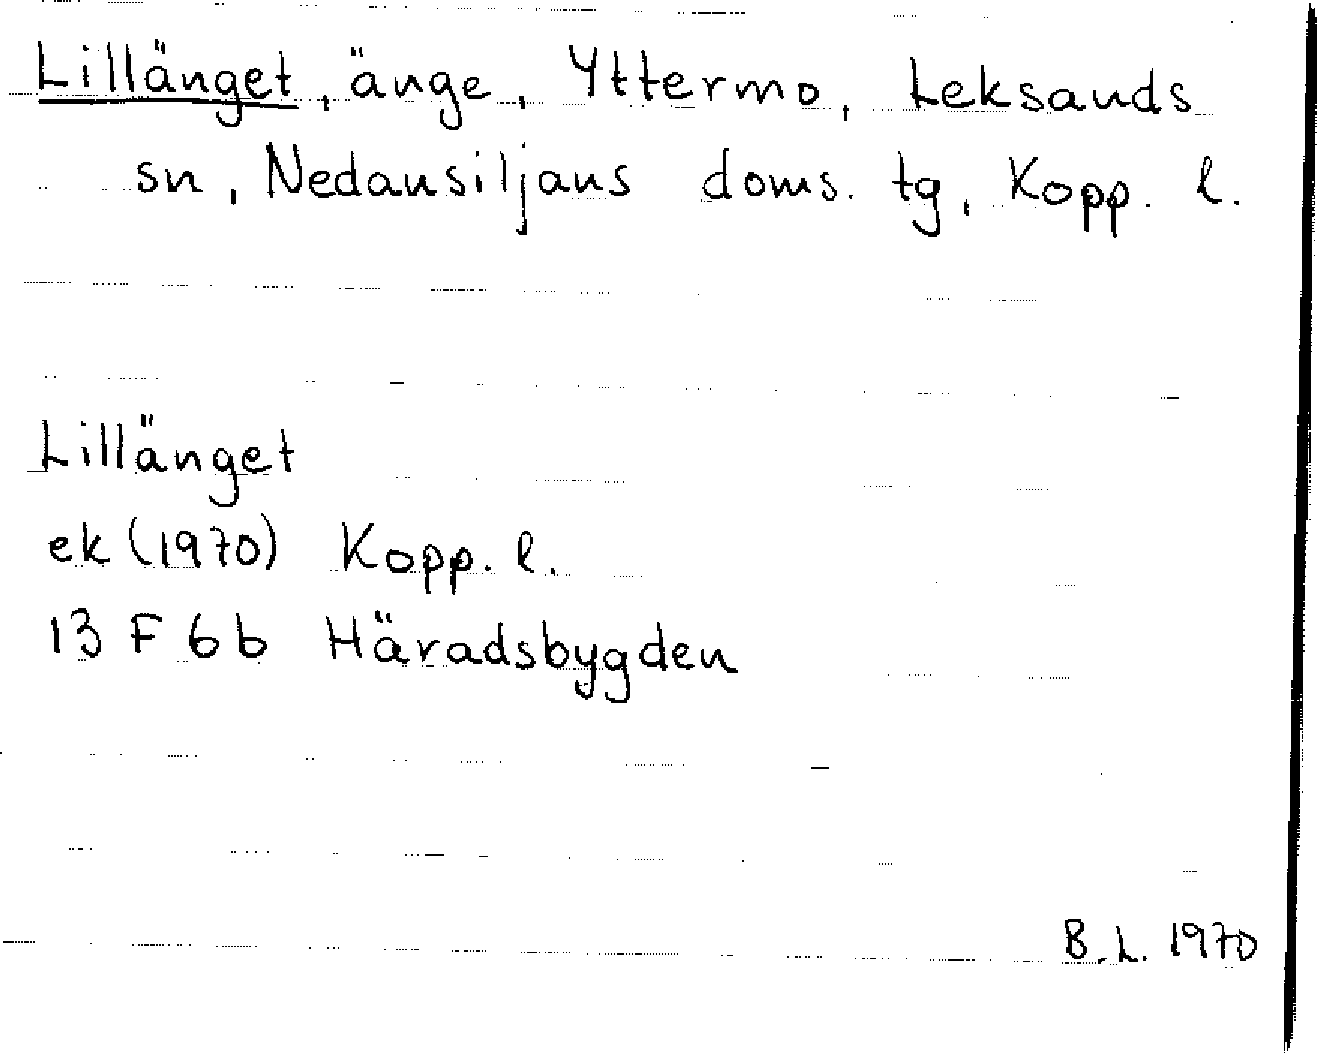 Lillänget, änge, Yttermo, Leksands
sn, Nedansiljans doms. tg, Kopp. l.
Lillänget
ek (1970) Kopp. l.
13 F 6 b Häradsbygden
B. L. 1970